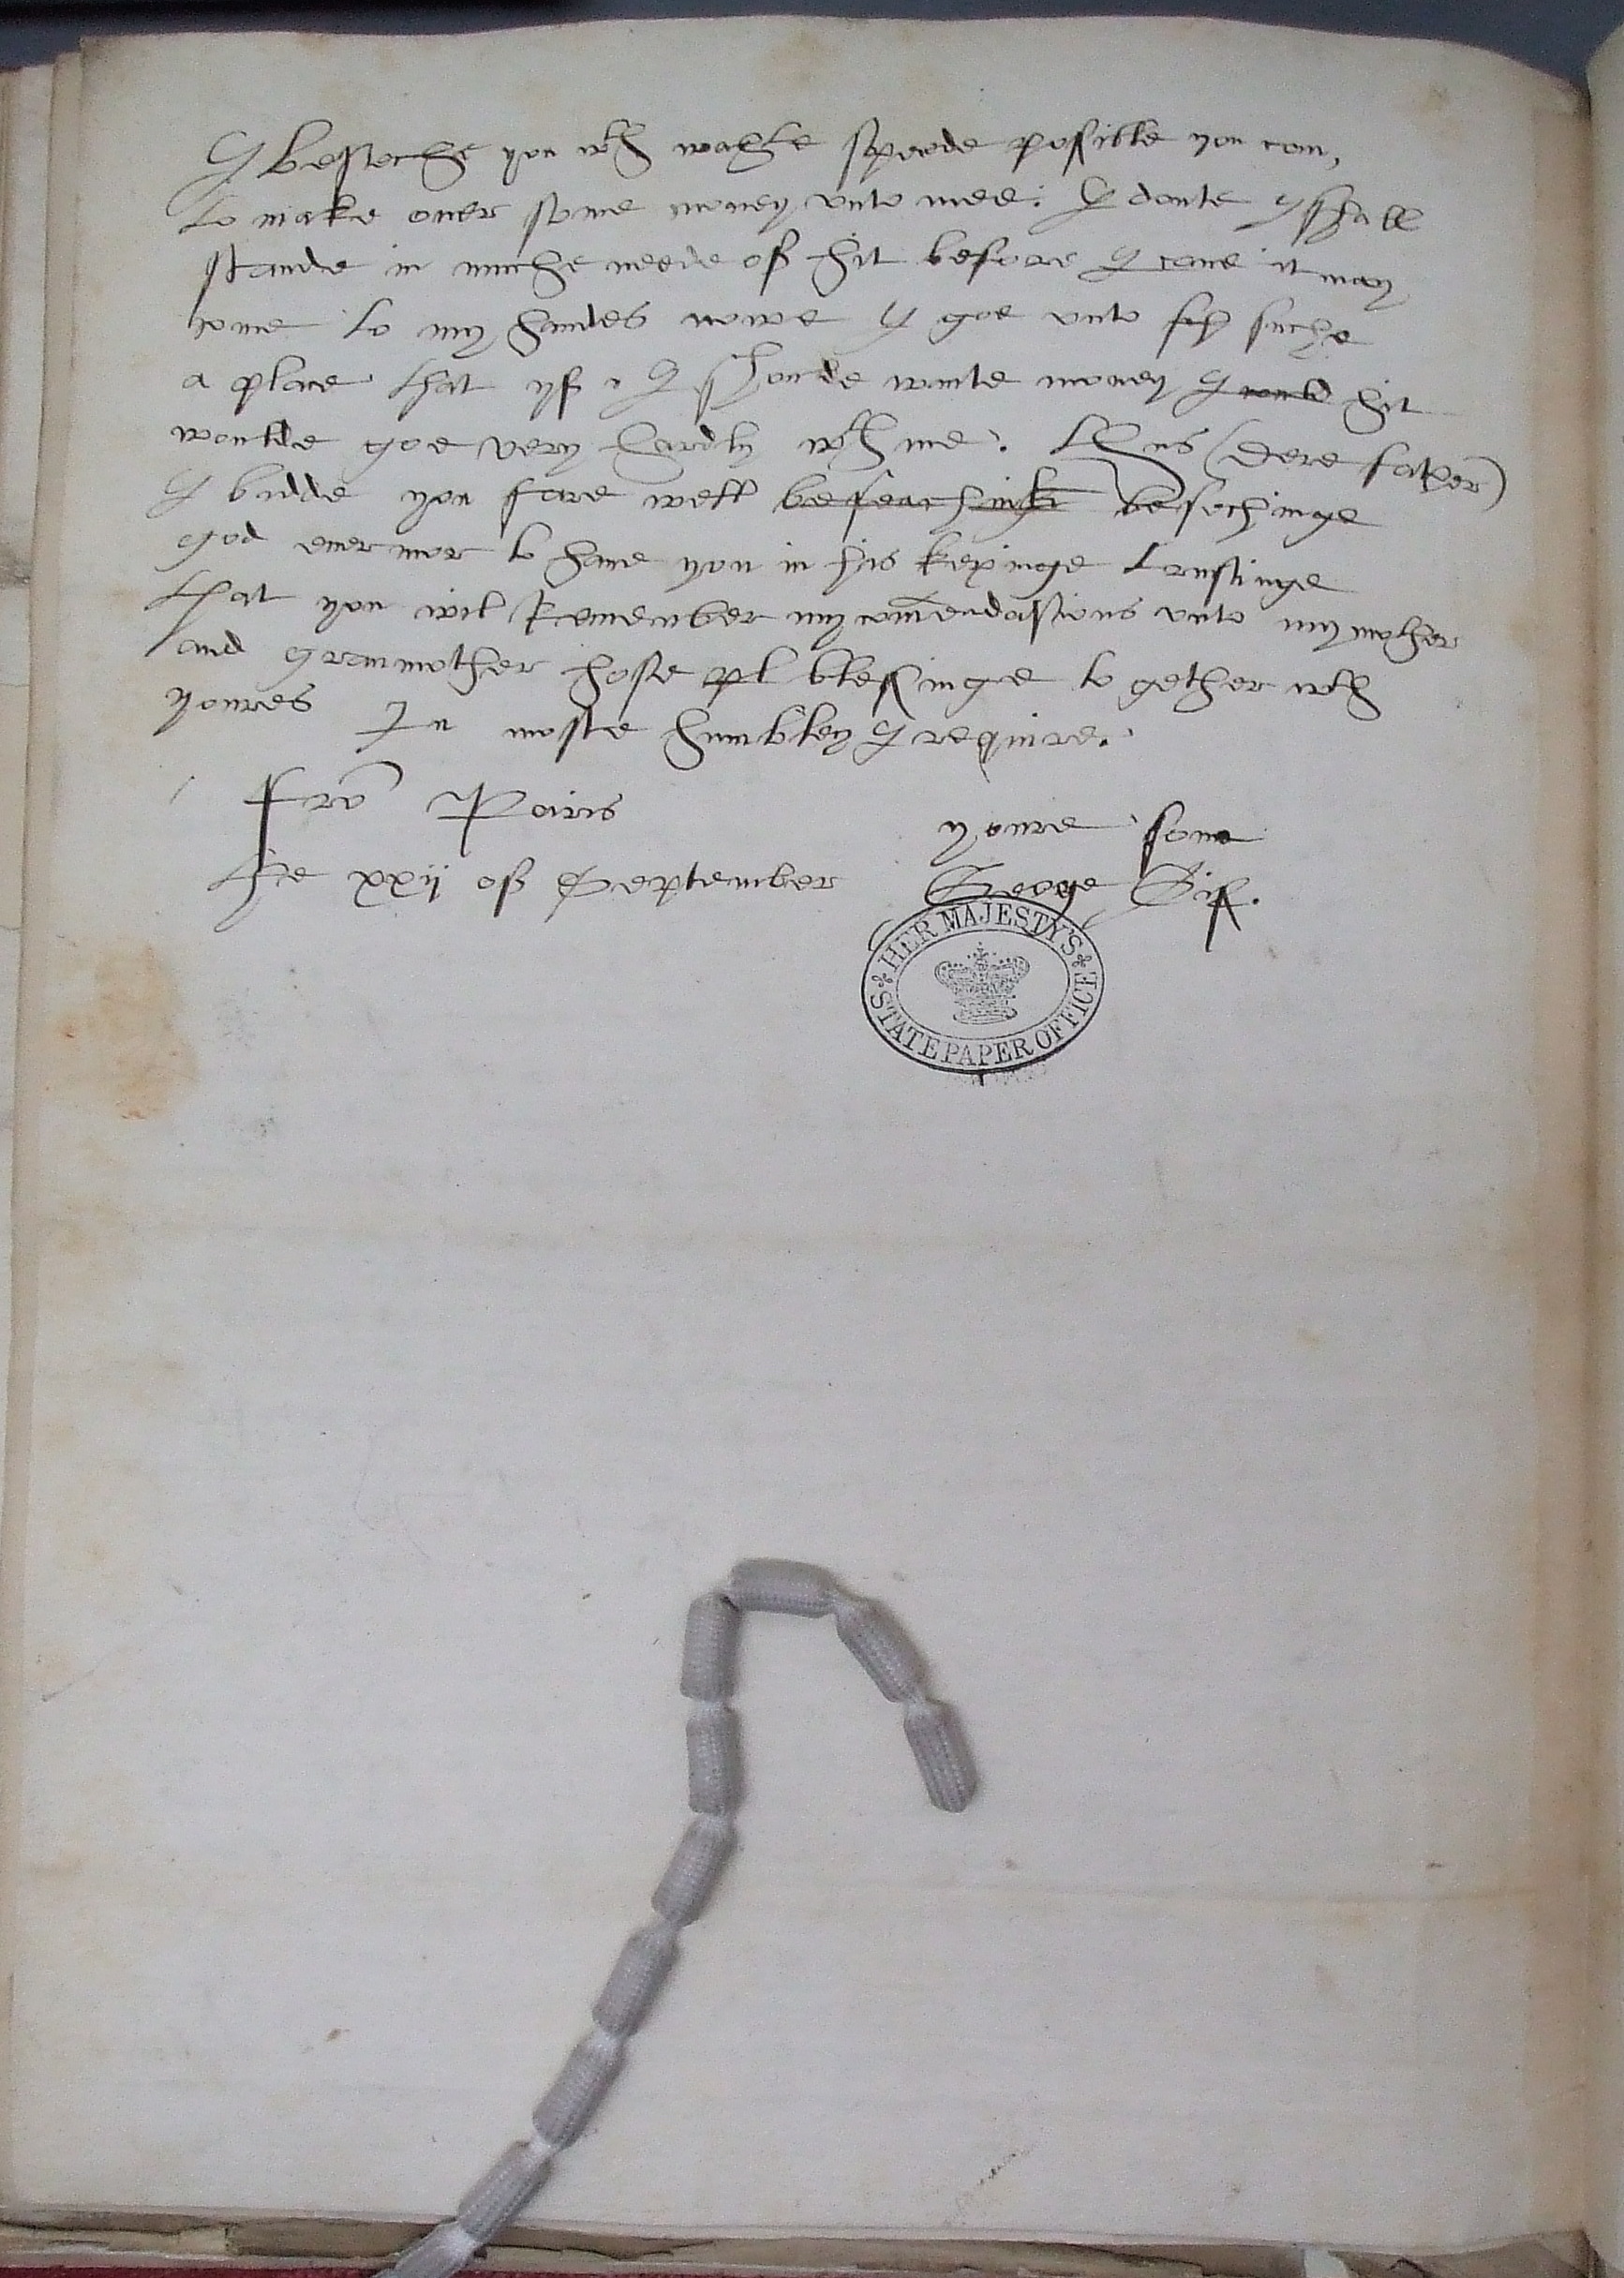 I beseche you wth wahte speede possible you can,
to make over some money unto mee. I doute I shall
stande in muche neede of hit before I cane it may
come to my handes nowe I goe unto suche
a place that yf I shoulde wante money I would hit
woulde goe very hardly wth me. Thus (Dere father)
I bidde you fare well beseachinge besechinge
god evermor to have you in his kepinge trustinge
that you wil Remember my comendations unto my mother
and granmother hose pl blessinge to gether wth
youres In moste humbley I require.
fro Paris
the xxii of September
youre sone
George Gif.
HER MAJESTY'S
STATE PAPER OFFICE